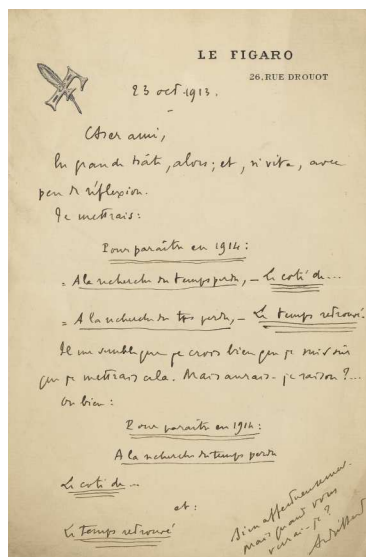 LE FIGARO
26, RUE DROUOT
23 oct. 1913.
Cher ami,
En grande hâte, alors ; et, si vite, avec
peu de réflexion.
Je mettrais :
Pour paraître en 1914 :
= A la recherche du temps perdu, – Le coté de...
= A la recherche du tps perdu, – Le temps retrouvé
Il me semble que je crois bien que je suis sûr
que je mettrais cela. Mais aurais-je raison ?...
Ou bien :
Pour paraître en 1914 :
A la recherche du temps perdu
Le coté de...
et :
Le temps retrouvé
Bien affectueusement.
Mais quand vous
verrai-je ?